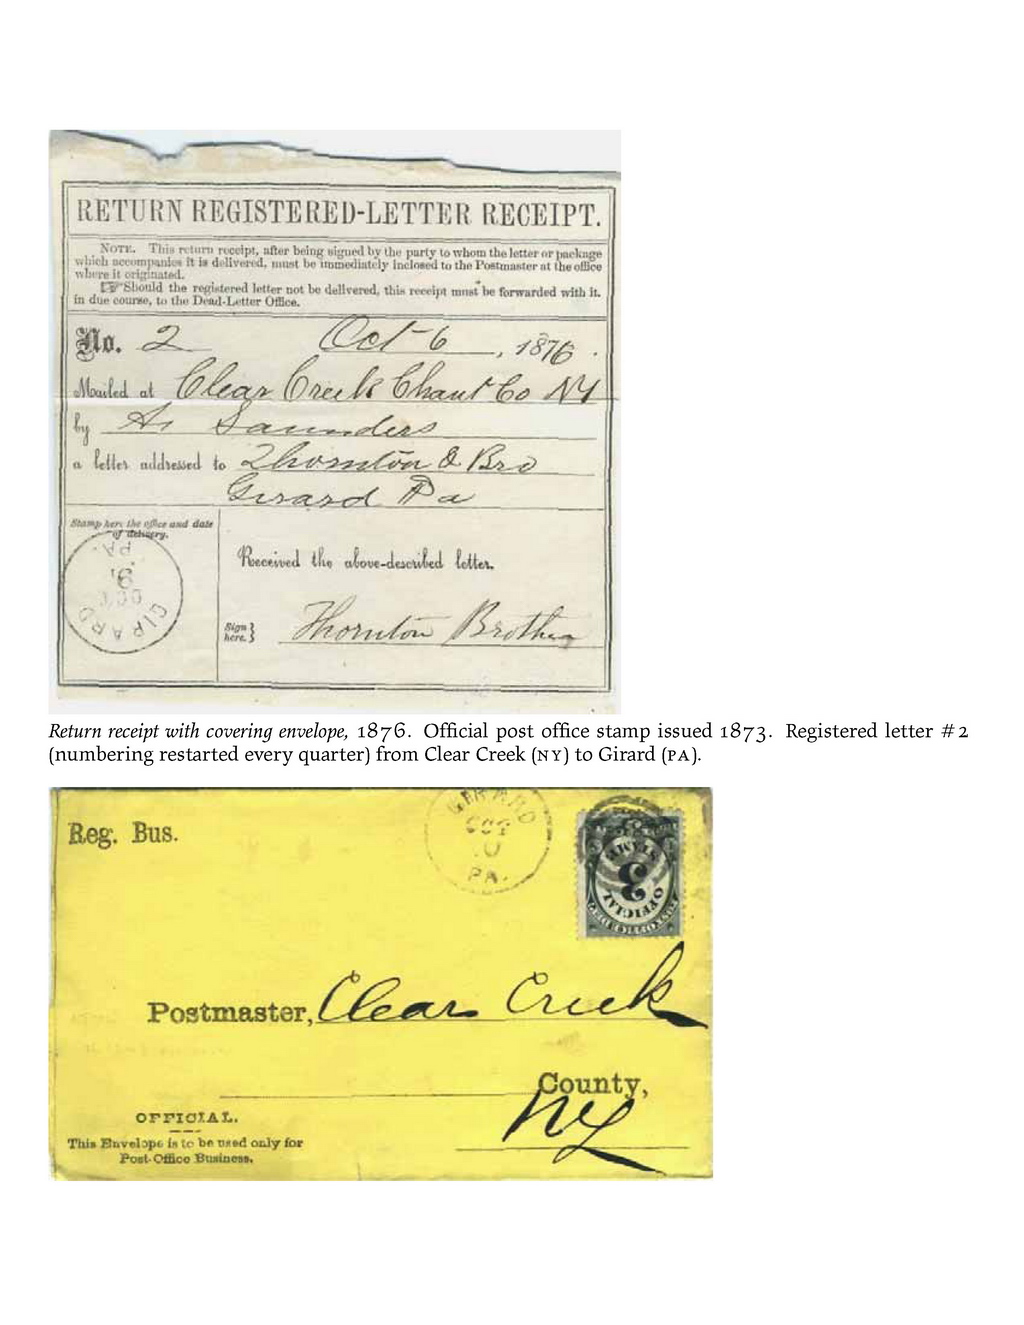 RETURN REGISTERED-LETTER RECEIPT.
NOTE. This return receipt, after being signed by the party to whom the letter or package
which accompanies it is delivered, must be immediately inclosed to the Postmaster at the office
where it originated.
☞Should the registered letter not be delivered, this receipt must be forwarded with it.
in due course, to the Dead-Letter Office.
No. 2 Oct 6, 1876.
Mailed at Clear Creek Chaut Co NY
by Saunders
a letter addressed to Thornton & Bro
Girard Pa
Stamp here the office and date
of delivery.
GIRARD
OCT
9
PA.
Received the above-described letter.
Sign
here. } Thornton Brothers
Return receipt with covering envelope, 1876. Official post office stamp issued 1873. Registered letter #2
(numbering restarted every quarter) from Clear Creek (NY) to Girard (PA).
Reg. Bus.
GIRARD
OCT
10
PA.
3
OFFICIAL
STAMP
Postmaster, Clear Creek
County,
NY
OFFICIAL.
This Envelope is to be used only for
Post-Office Business.